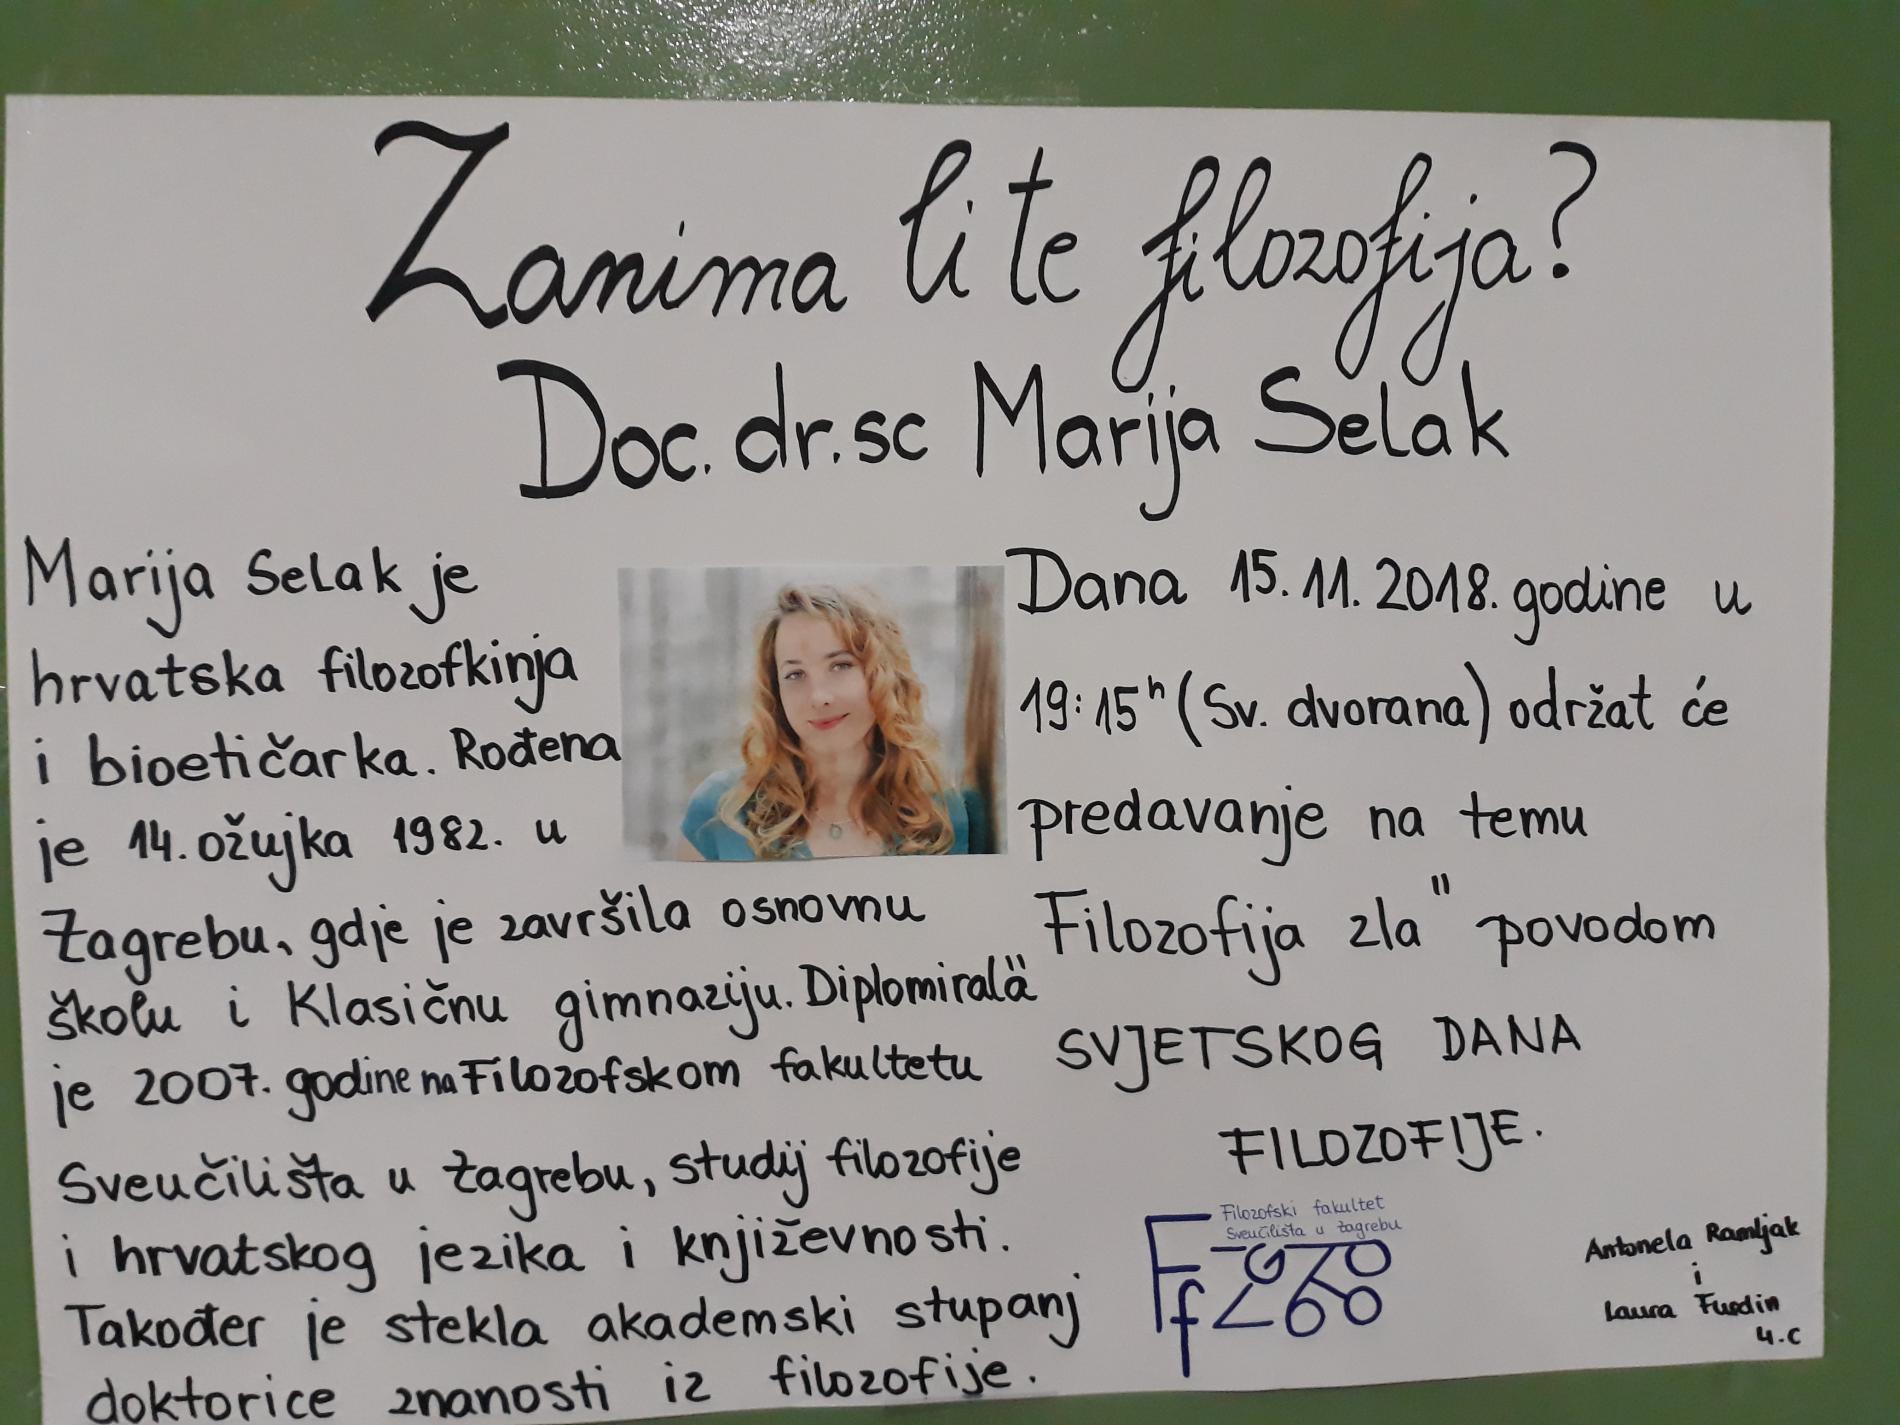 Zanima li te filozofija?
Doc. dr.sc Marija Selak
Marija Selak je
hrvatska filozofkinja
i bioetičarka. Rođena
je 14. ožujka 1982. u
Zagrebu, gdje je završila osnovnu
školu i Klasičnu gimnaziju. Diplomirala
je 2007. godine na Filozofskom fakultetu
Sveučilišta u Zagrebu, studij filozofije
i hrvatskog jezika i književnosti.
Također je stekla akademski stupanj
doktorice znanosti iz filozofije.
Dana 15. 11. 2018. godine u
19:15h (Sv. dvorana) održat će
predavanje na temu
"Filozofija zla" povodom
SVJETSKOG DANA
FILOZOFIJE.
Filozofski fakultet
Sveučilišta u Zagrebu
Antonela Ramljak
i
Laura
4.c